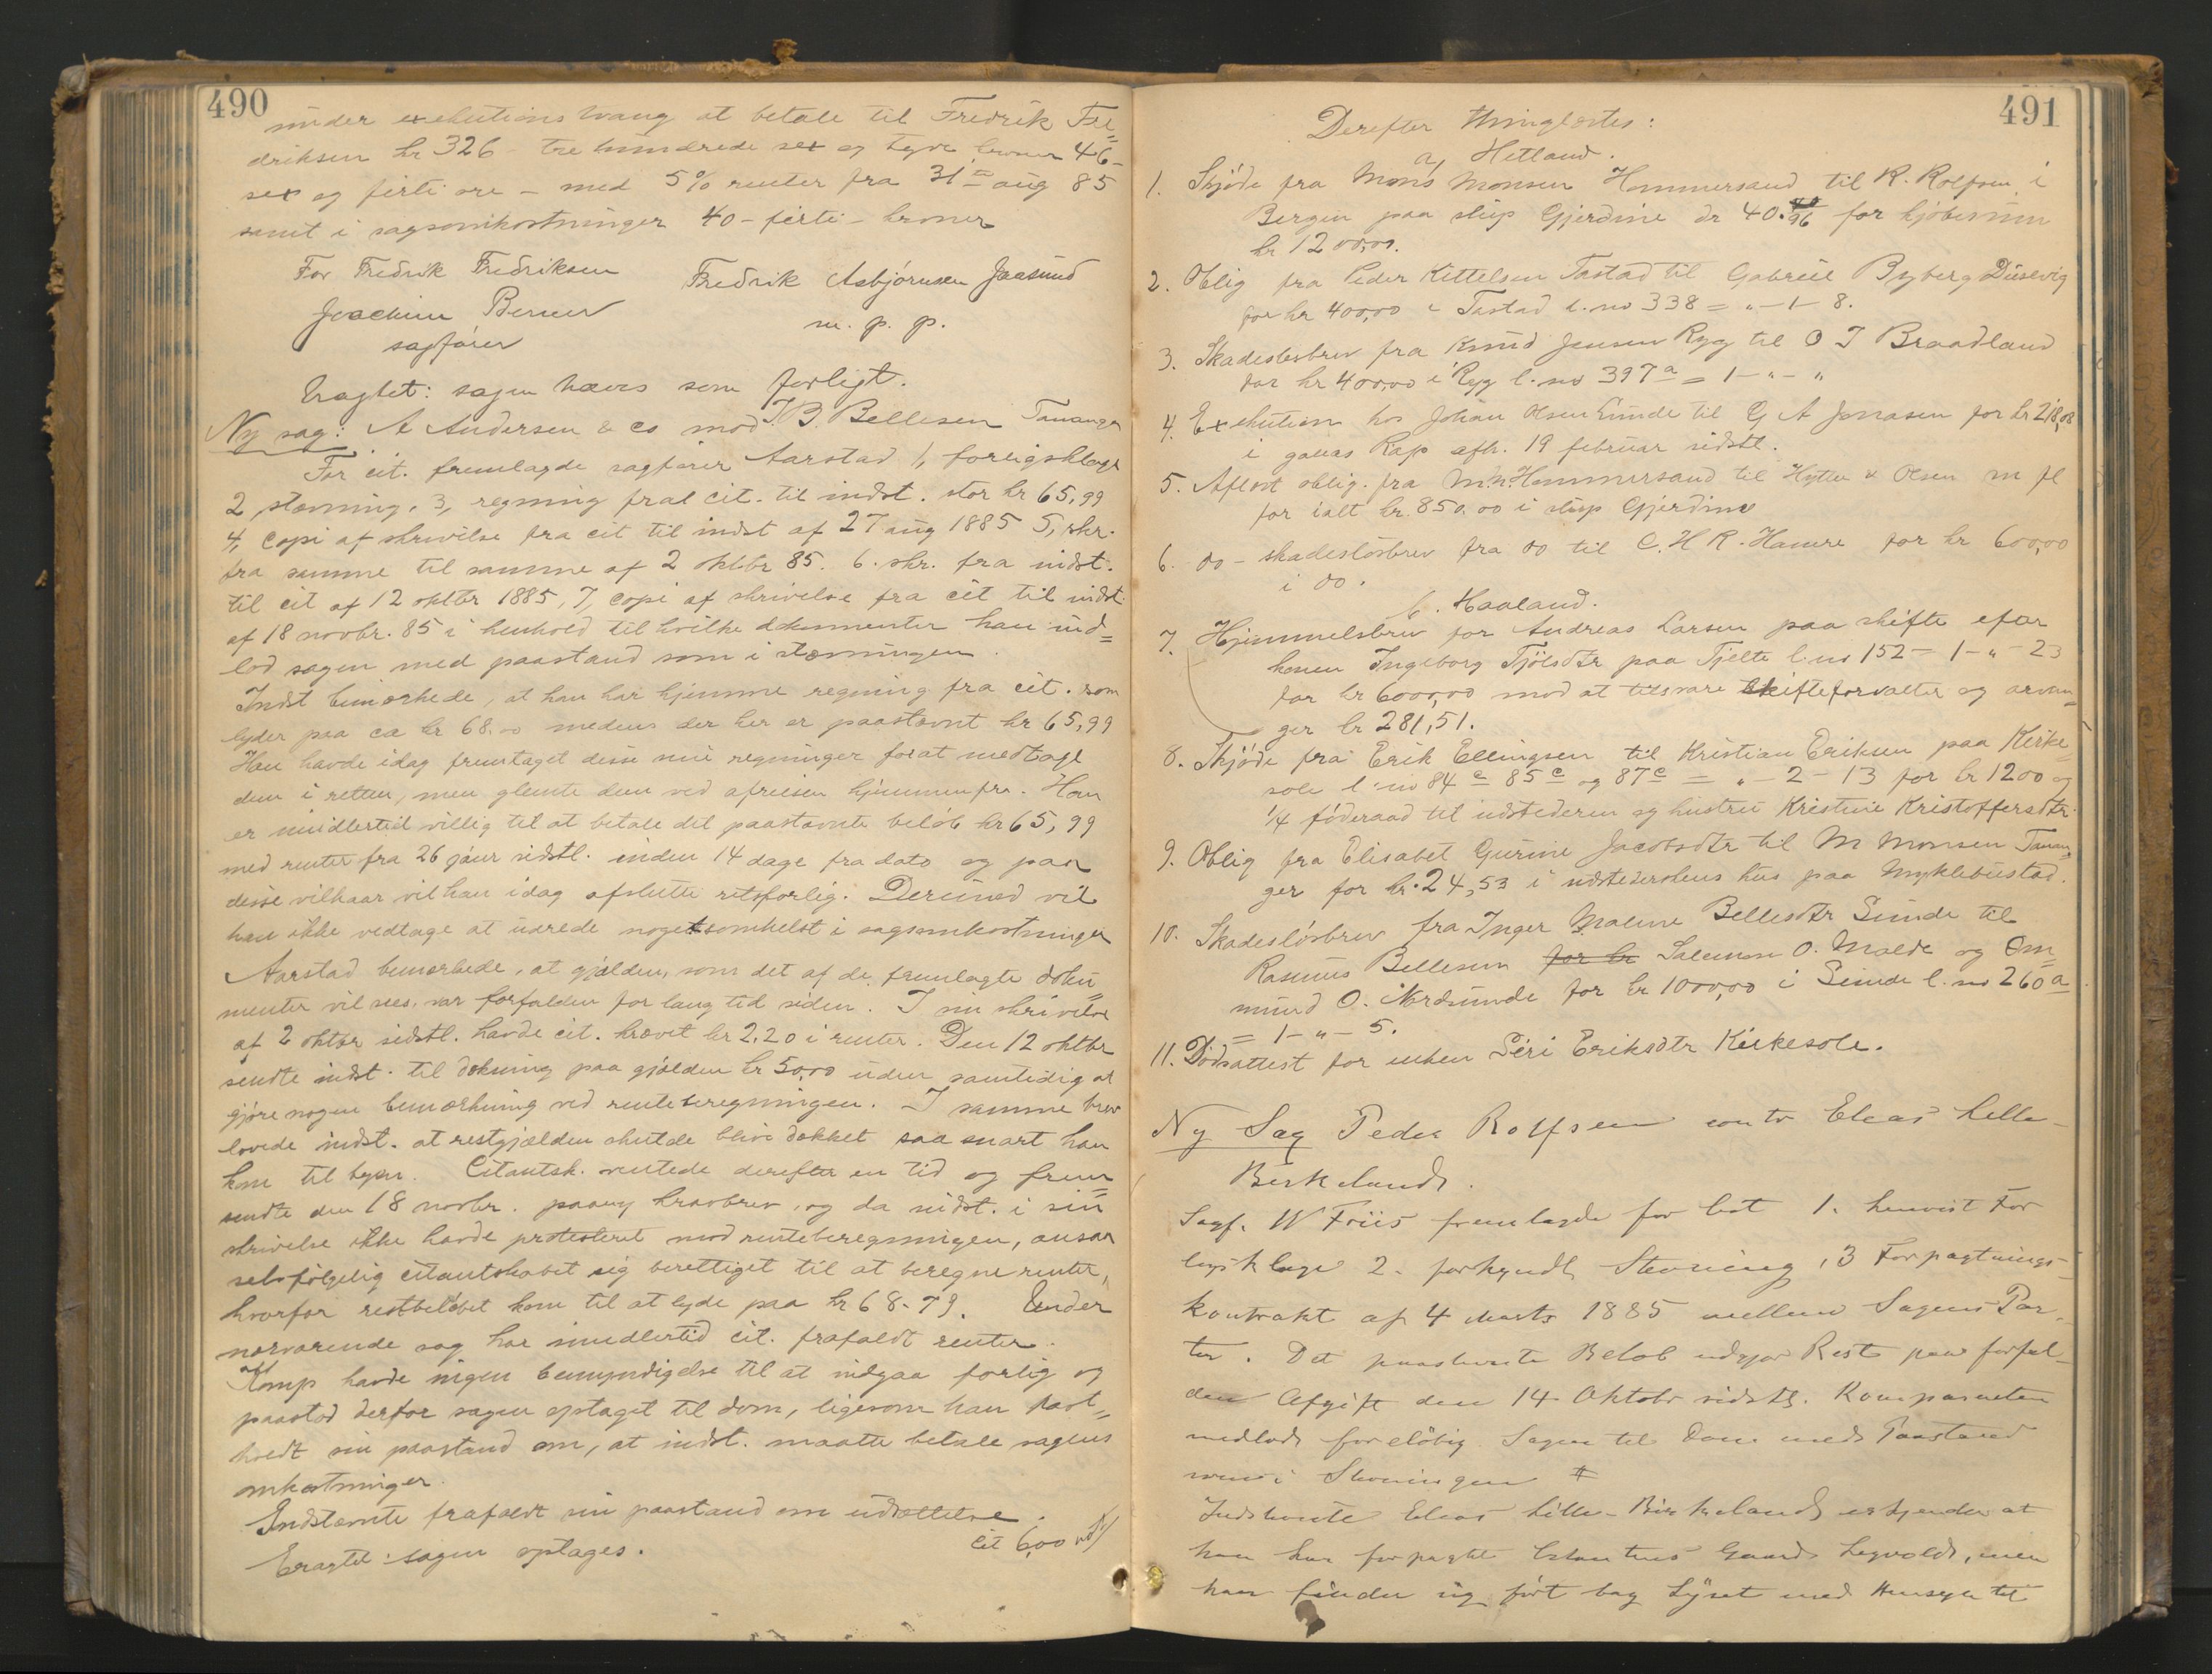 490
under exekutions tvang at betale til Fredrik Fre„
driksen kr 326 - tre hundrede sex og tyve kroner 46 -
sex og förti øre - med 5% renter fra 31te aug 85
samt i sagsomkostninger 40 - förti - kroner
For Fredrik Fredriksen Fredrik Asbjörnsen Jaasund
Joachim Berner m. p. p.
sagförer
Eragtet: sagen hæves som forligt.
Ny sag: A Andersen & co mod J. B. Bellesen Tananger
For cit. fremlagde sagförer Aarstad 1, forligsklage
2 stævning, 3, regning fral cit. til indst. stor kr 65,99
4, copi af skrivelse fra cit til indst af 27 aug 1885 5, skr.
fra samme til samme af 2 oktbr 85. 6. skr. fra indst.
til cit af 12 oktbr 1885, 7, copi af skrivelse fra cit til indst.
af 18 novbr. 85 i henhold til hvilke dokumenter han ind=
lod sagen med paastand som i stævningen.
Indst bemærkede, at han har hjemme regning fra cit. som
lyder paa ca kr 68.00 medens der her er paastævnt kr 65,99
Han havde idag fremtaget disse sine regninger forat medtage
dem i retten, men glemte dem ved afreisen hjemmenfra. Han
er imidlertid villig til at betale det paastævnte belöb kr 65,99
med renter fra 26 januar sidstl. inden 14 dage fra dato og paa
disse vilkaar vil han idag afslutte retsforlig. Derimod vil
han ikke vedtage at udrede nogetsomhelst i sagsomkostninger
Aarstad bemærkede, at gjælden, som det af de fremlagte doku„
menter vil sees, var forfalden for lang tid siden. I sin skrivelse
af 2 oktbr sidstl. havde cit. krævet kr 2,20 i renter. Den 12 oktbr
sendte indst. til dækning paa gjælden kr 50,00 uden samtidig at
gjöre nogen bemærkning ved renteberegningen. I samme brev
lovede indst. at restgjælden skulde blive dækket saa snart han
kom til byen. Citantsk. ventede derefter en tid og frem=
sendte den 18 novbr. paany kravbrev, og da indst. i sin
skrivelse ikke havde protesteret mod renteberegningen, ansaa
selvfölgelig citantskabet sig berettiget til at beregne renter,
hvorfor restbelöbet kom til at lyde paa kr 68-79. Under
nærværende sag har imidlertid cit. frafaldt renter.
Komp havde ingen bemyndigelse til at indgaa forlig og
paastod derfor sagen optaget til dom, ligesom han fast„
holdt sin paastand om, at indst. maatte betale sagens
omkostninger.
Indstævnte frafaldt sin paastand om udsættelse.
Eragtet: sagen optages. cit 6,00
491
Derefter thinglæstes:
a, Hetland.
1. Skjöde fra Mons Monsen Hommersand til R. Rolfsen i
Bergen paa slup Gjerdine dr 40.96 for kjöbesum
kr 1200,00.
2. Oblig fra Peder Kittelsen Tastad til Gabriel Byberg Dusevig
for kr 400,00 i Tastad l. no 338 = „ - 1 - 8.
3. Skadeslösbrev fra Knud Jensen Ryg til O T Braadland
for kr 400,00 i Ryg l. no 397a = 1 - „ - „
4. Exekution hos Johan Olsen Lunde til G A Jonasen for kr 218,08
i galeas Rap afh. 19 februar sidstl.
5. Aflæst oblig. fra M. M. Hommersand til Hytten & Olsen m fl
for ialt kr. 850.00 i slup Gjerdine
6. do - skadeslösbrev fra do til C. H R. Hanere for kr 600,00
i do.
b. Haaland.
7. Hjemmelsbrev for Andreas Larsen paa skifte efter
konen Ingeborg Tjölsdtr paa Tjelte l. no 152 = 1 - „ - 23
for kr 6000,00 mod at tilsvare skifteforvalter og arvin„
ger kr 281,51.
8. Skjöde fra Erik Ellingsen til Kristian Eriksen paa Kirke
sole l. no 84c 85c og 87c = „ - 2 - 13 for kr 1200 og
1/4 föderaad til udstederen og hustru Kristine Kristoffersdtr.
9. Oblig fra Elisabet Gurine Jacobsdtr til M Monsen Tanan„
ger for kr. 24,53 i udstederskens hus paa Myklebustad.
10. Skadeslösbrev fra Inger Malene Bellesdtr Sunde til
Rasmus Bellesen for kr Salemon O. Malde og Om=
mund O. Nordsunde for kr 1000,00 i Sunde l. no 260a
= 1 - „ - 5.
11. Dödsattest for enken Siri Eriksdtr Kirkesole.
Ny Sag Peder Rolfsen contr Elias Lille-
Birkeland.
Sagf. W Friis fremlagde for Cit 1. henvist For
ligsklage 2. forkyndt Stevning, 3 Forpagtnings-
kontrakt af 4 Marts 1885 mellem Sagens Par-
ter. Det paastevnte Belöb udgjør Rest paa forfal-
den Afgift den 14 Oktobr sidstl. Komparenten
indlod foreløbig Sagen til Dom med Paastand
som i Stevningen #
Indstevnte Elias Lille-Birkeland erkjender at
han har forpagtet Citantens Gaard Legvold, men
han finder sig ført bag Lyset med Hensyn til